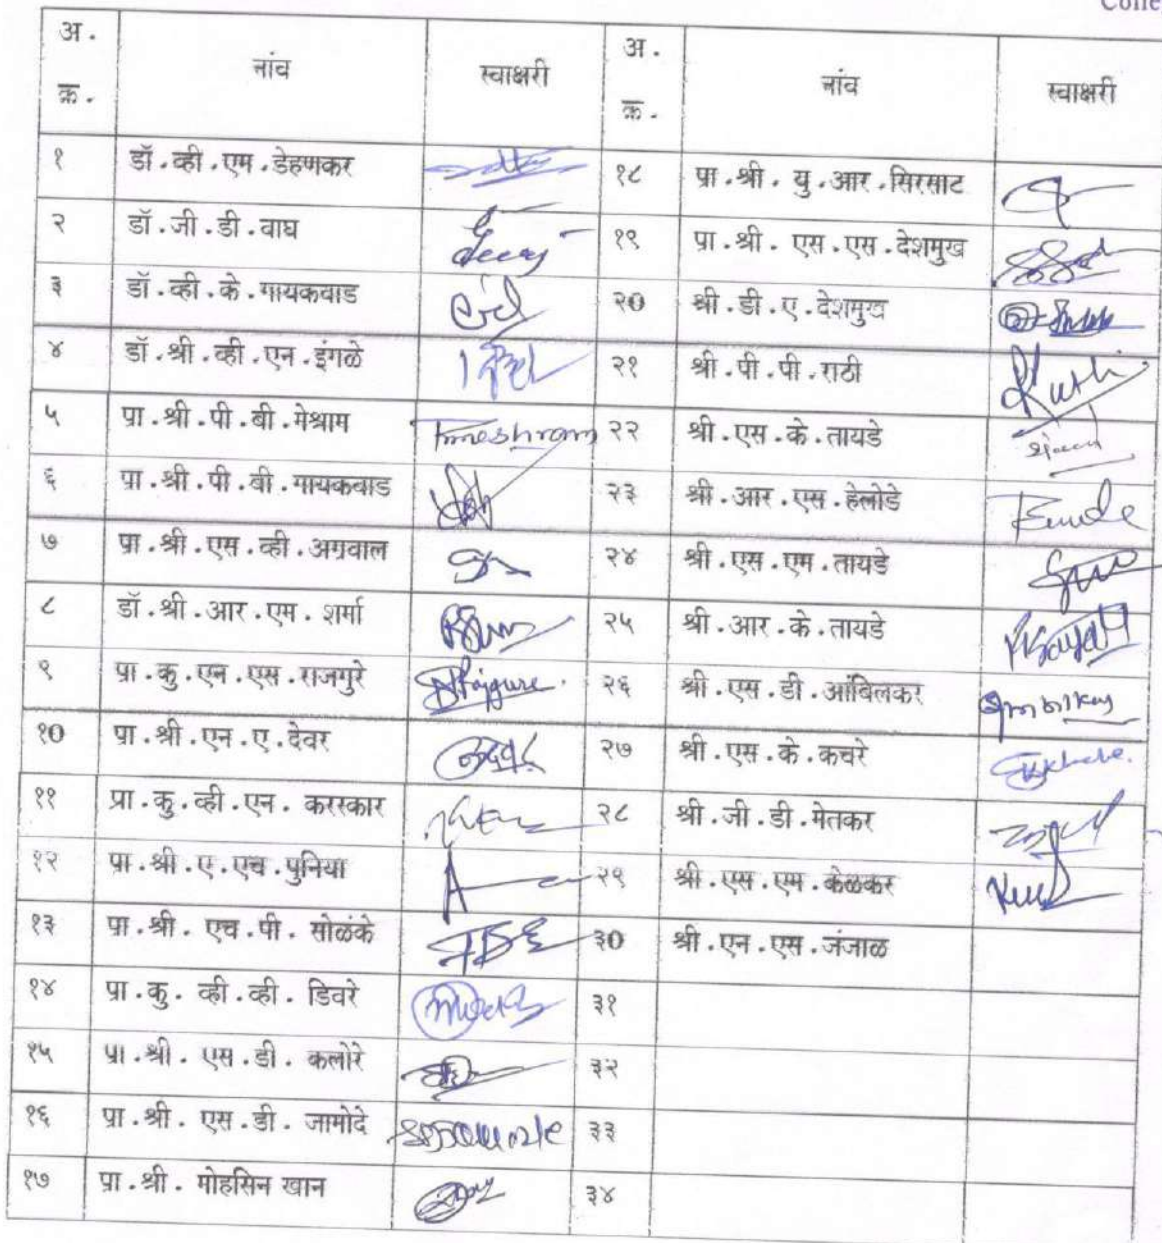 अ. क्र. नांव स्वाक्षरी अ. क्र. नांव स्वाक्षरी
१ डॉ.व्ही.एम.डेहणकर १८ प्रा.श्री. यु.आर.सिरसाट
२ डॉ.जी.डी.वाघ १९ प्रा.श्री. एस.एस.देशमुख
३ डॉ.व्ही.के.गायकवाड २0 श्री.डी.ए.देशमुख
४ डॉ.श्री.व्ही.एन.इंगळे २१ श्री.पी.पी.राठी
५ प्रा.श्री.पी.बी.मेश्राम २२ श्री.एस.के.तायडे
६ प्रा.श्री.पी.बी.गायकवाड २३ श्री.आर.एस.हेलोडे
७ प्रा.श्री.एस.व्ही.अग्रवाल २४ श्री.एस.एम.तायडे
८ डॉ.श्री.आर.एम. शर्मा २५ श्री.आर.के.तायडे
९ प्रा.कु.एन.एस.राजगुरे २६ श्री.एस.डी.आंबिलकर
१0 प्रा.श्री.एन.ए.देवर २७ श्री.एस.के.कचरे
११ प्रा.कु.व्ही.एन. करस्कार २८ श्री.जी.डी.मेतकर
१२ प्रा.श्री.ए.एच.पुनिया २९ श्री.एस.एम.केळकर
१३ प्रा.श्री. एच.पी. सोळंके ३0 श्री.एन.एस.जंजाळ
१४ प्रा.कु. व्ही.व्ही. डिवरे ३१
१५ प्रा.श्री. एस.डी. कलोरे ३२
१६ प्रा.श्री. एस.डी. जामोदे ३३
१७ प्रा.श्री. मोहसिन खान ३४